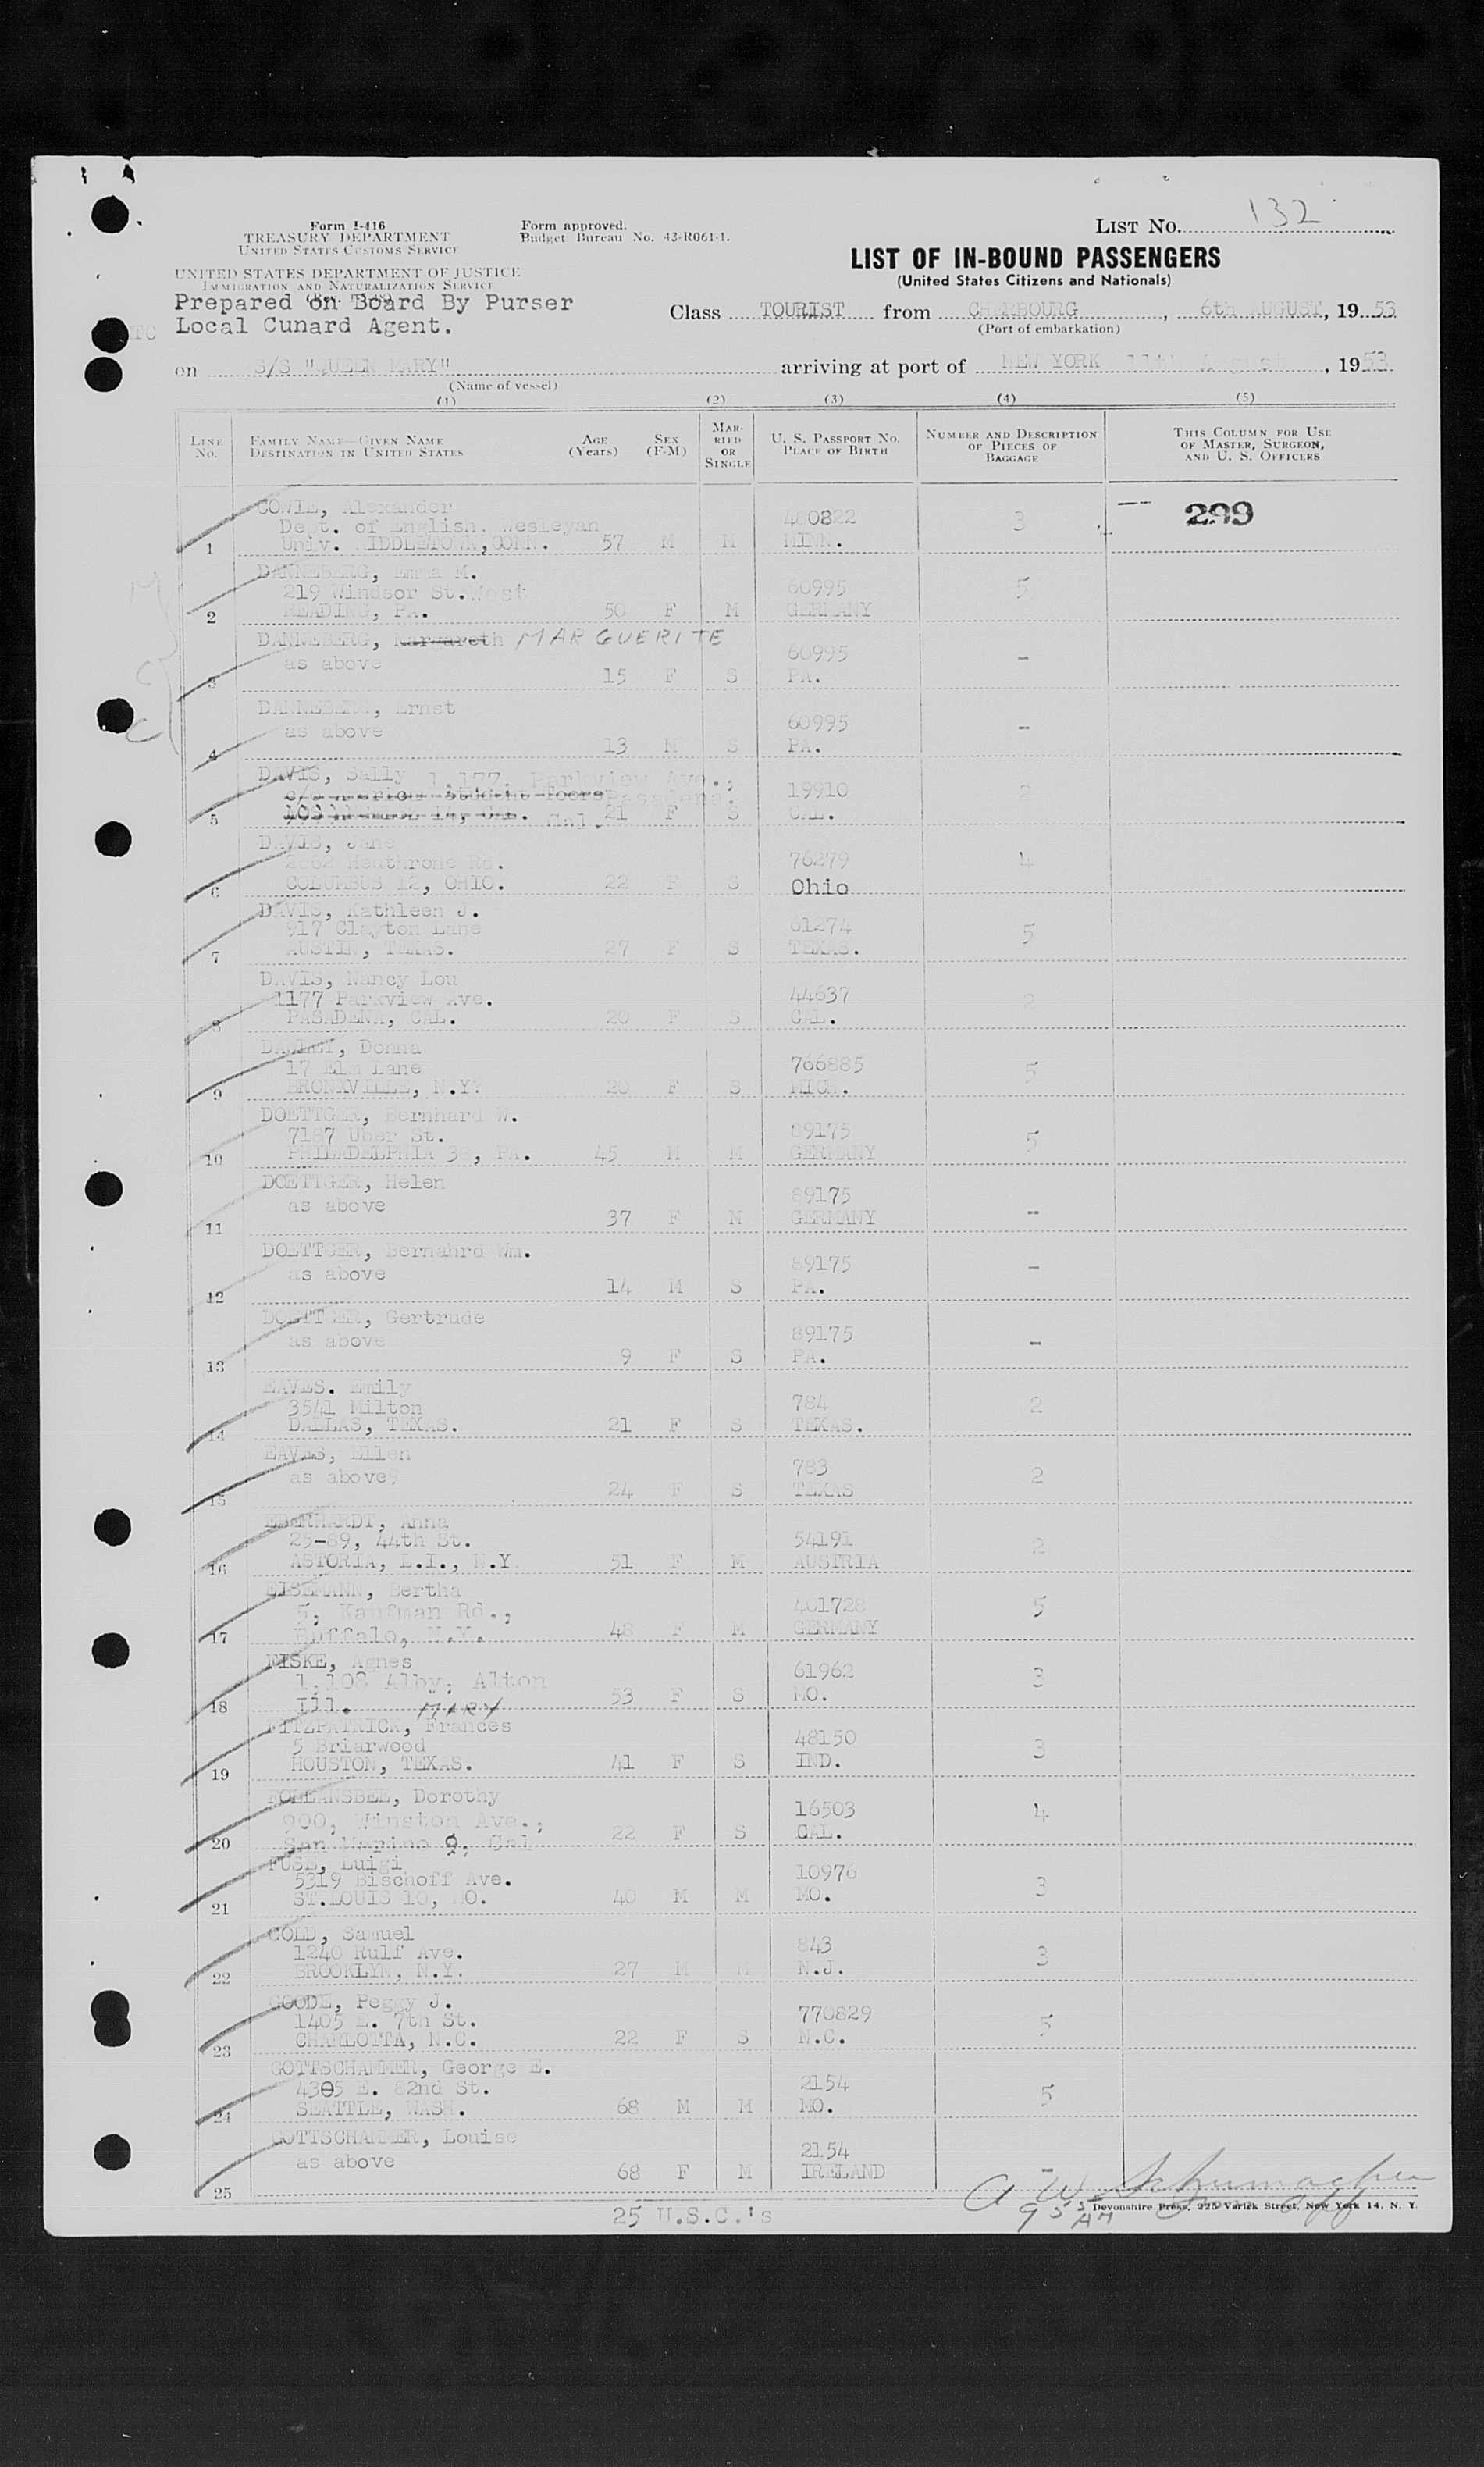 LIST NO. 132
Form I-416
TREASURY DEPARTMENT
UNITED STATES CUSTOMS SERVICE
Form approved.
Budget Bureau No. 43-R061-1.
UNITED STATES DEPARTMENT OF JUSTICE
IMMIGRATION AND NATURALIZATION SERVICE
LIST OF IN-BOUND PASSENGERS
(United States Citizens and Nationals)
Prepared on Board By Purser
Local Cunard Agent.
Class TOURIST from CHERBOURG, 6th AUGUST, 1953
(Port of embarkation)
on S/S "QUEEN MARY" arriving at port of NEW YORK 11th August, 1953
(Name of vessel)
(1) (2) (3) (4) (5)
LINE NO. FAMILY NAME—GIVEN NAME DESTINATION IN UNITED STATES AGE (Years) SEX (F-M) MARRIED OR SINGLE U. S. PASSPORT NO. PLACE OF BIRTH NUMBER AND DESCRIPTION OF PIECES OF BAGGAGE THIS COLUMN FOR USE OF MASTER, SURGEON, AND U. S. OFFICERS
COWIE, Alexander 480822 3 299
Dept. of English. Wesleyan
1 Univ. MIDDLETOWN, CONN. 57 M M MINN.
DANNEBERG, Emma M. 60995 5
219 Windsor St. West
2 READING, PA. 50 F M GERMANY
DANNEBERG, Margareth MARGUERITE 60995 -
as above
3 15 F S PA.
DANNEBERG, Ernst 60995 -
as above
4 13 M S PA.
DAVIS, Sally 1,177, Parkview Ave., 19910 2
Pasadena,
5 Cal. 21 F S CAL.
DAVIS, Jane 76279 4
Heathrone Rd.
6 COLUMBUS 12, OHIO. 22 F S Ohio
DAVIS, Kathleen J. 61274 5
917 Clayton Lane
7 AUSTIN, TEXAS. 27 F S TEXAS.
DAVIS, Nancy Lou 44637 2
1177 Parkview Ave.
8 PASADENA, CAL. 20 F S CAL.
DAWLEY, Donna 766885 5
17 Elm Lane
9 BRONXVILLE, N.Y. 20 F S MICH.
DOETTGER, Bernhard W. 89175 5
7187 Uber St.
10 PHILADELPHIA 38, PA. 45 M M GERMANY
DOETTGER, Helen 89175 -
as above
11 37 F M GERMANY
DOETTGER, Bernahrd Wm. 89175 -
as above
12 14 M S PA.
DOETTGER, Gertrude 89175 -
as above
13 9 F S PA.
EAVES. Emily 784 2
3541 Milton
14 DALLAS, TEXAS. 21 F S TEXAS.
EAVES, Ellen 783 2
as above
15 24 F S TEXAS
EBERHARDT, Anna 54191 2
25-89, 44th St.
16 ASTORIA, L.I., N.Y. 51 F M AUSTRIA
EISEMANN, Bertha 401728 5
5, Kaufman Rd.,
17 Buffalo, N.Y. 48 F M GERMANY
FISKE, Agnes 61962 3
1,108 Alby, Alton
18 Ill. 53 F S MO.
MARY
FITZPATRICK, Frances 48150 3
5 Briarwood
19 HOUSTON, TEXAS. 41 F S IND.
FOLLANSBEE, Dorothy 16503 4
900, Winston Ave.,
20 San Marino 9, Cal 22 F S CAL.
FUSE, Luigi 10976 3
5319 Bischoff Ave.
21 ST.LOUIS 10, MO. 40 M M MO.
GOLD, Samuel 843 3
1240 Rulf Ave.
22 BROOKLYN, N.Y. 27 M M N.J.
GOODE, Peggy J. 770829 5
1405 E. 7th St.
23 CHARLOTTA, N.C. 22 F S N.C.
GOTTSCHAMMER, George E. 2154 5
4305 E. 82nd St.
24 SEATTLE, WASH. 68 M M MO.
GOTTSCHAMMER, Louise 2154 -
as above
25 68 F M IRELAND
A W Schumacher
Devonshire Press, 225 Varick Street, New York 14, N. Y.
25 U.S.C.'s